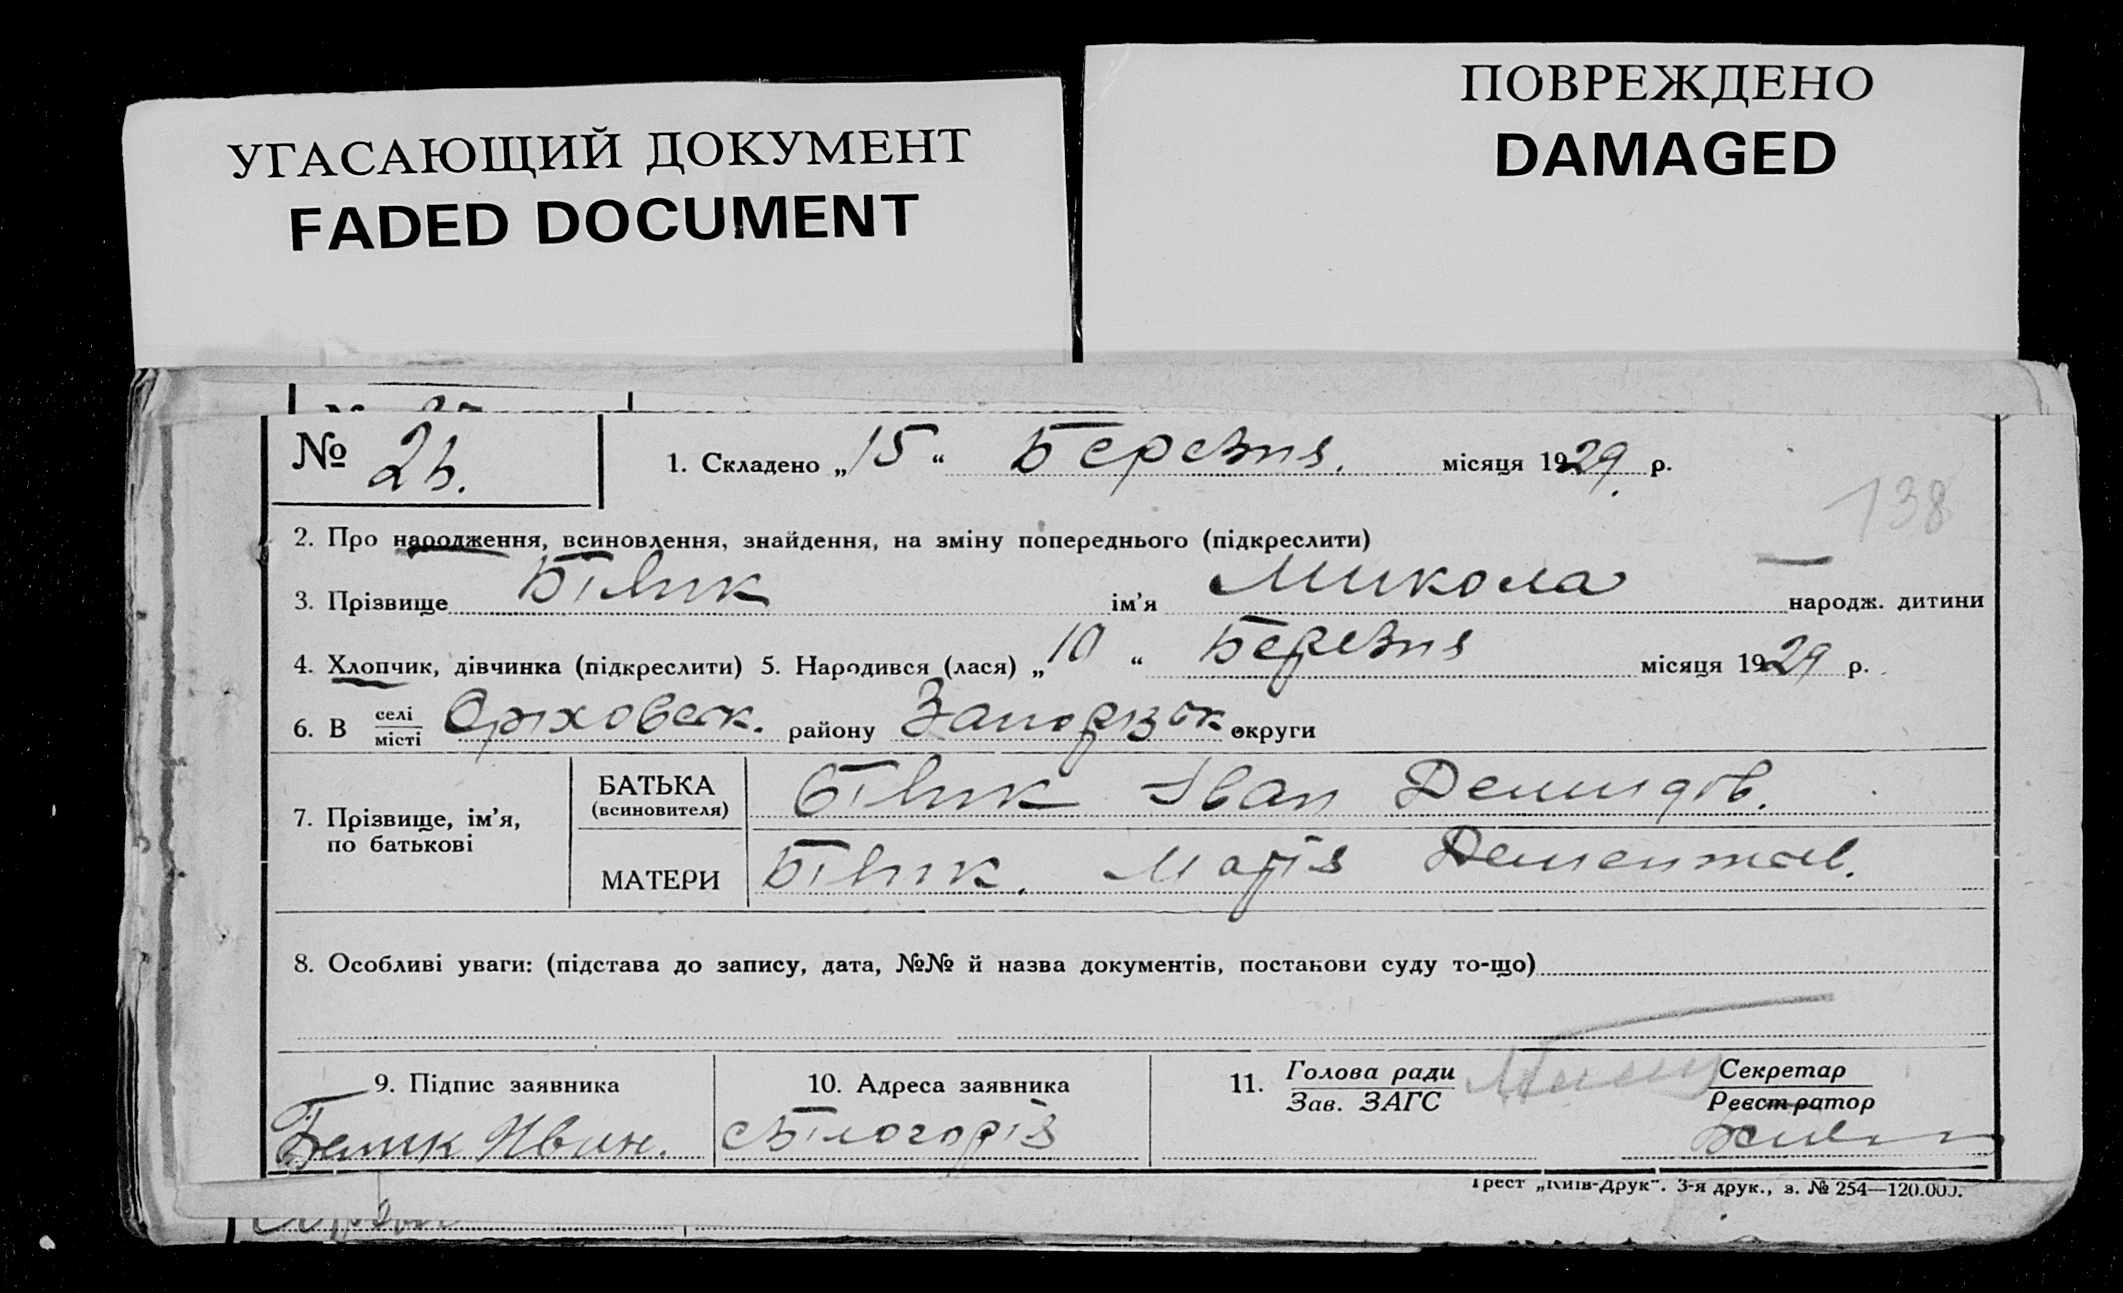 УГАСАЮЩИЙ ДОКУМЕНТ
FADED DOCUMENT
ПОВРЕЖДЕНО
DAMAGED
№ 1. Складено „15“ Березня. місяця 1929 р.
138
2. Про народження, всиновлення, знайдення, на зміну попереднього (підкреслити)
3. Прізвище Білик ім’я Микола народж. дитини
4. Хлопчик, дівчинка (підкреслити) 5. Народився (лася) „10“ Березня місяця 1929 р.
6. В селі місті Оріховськ. району Запорізьк округи
7. Прізвище, ім’я, по батькові
БАТЬКА (всиновителя) Білик Іван Демидов.
МАТЕРИ Білик. Марія
8. Особливі уваги: (підстава до запису, дата, №№ й назва документів, постанови суду то-що)
9. Підпис заявника
Белик Иван.
10. Адреса заявника
11. Голова ради
Зав. ЗАГС
Секретар
Реєстратор
Трест „Київ-Друк“. 3-я друк., з. № 254—120.000.